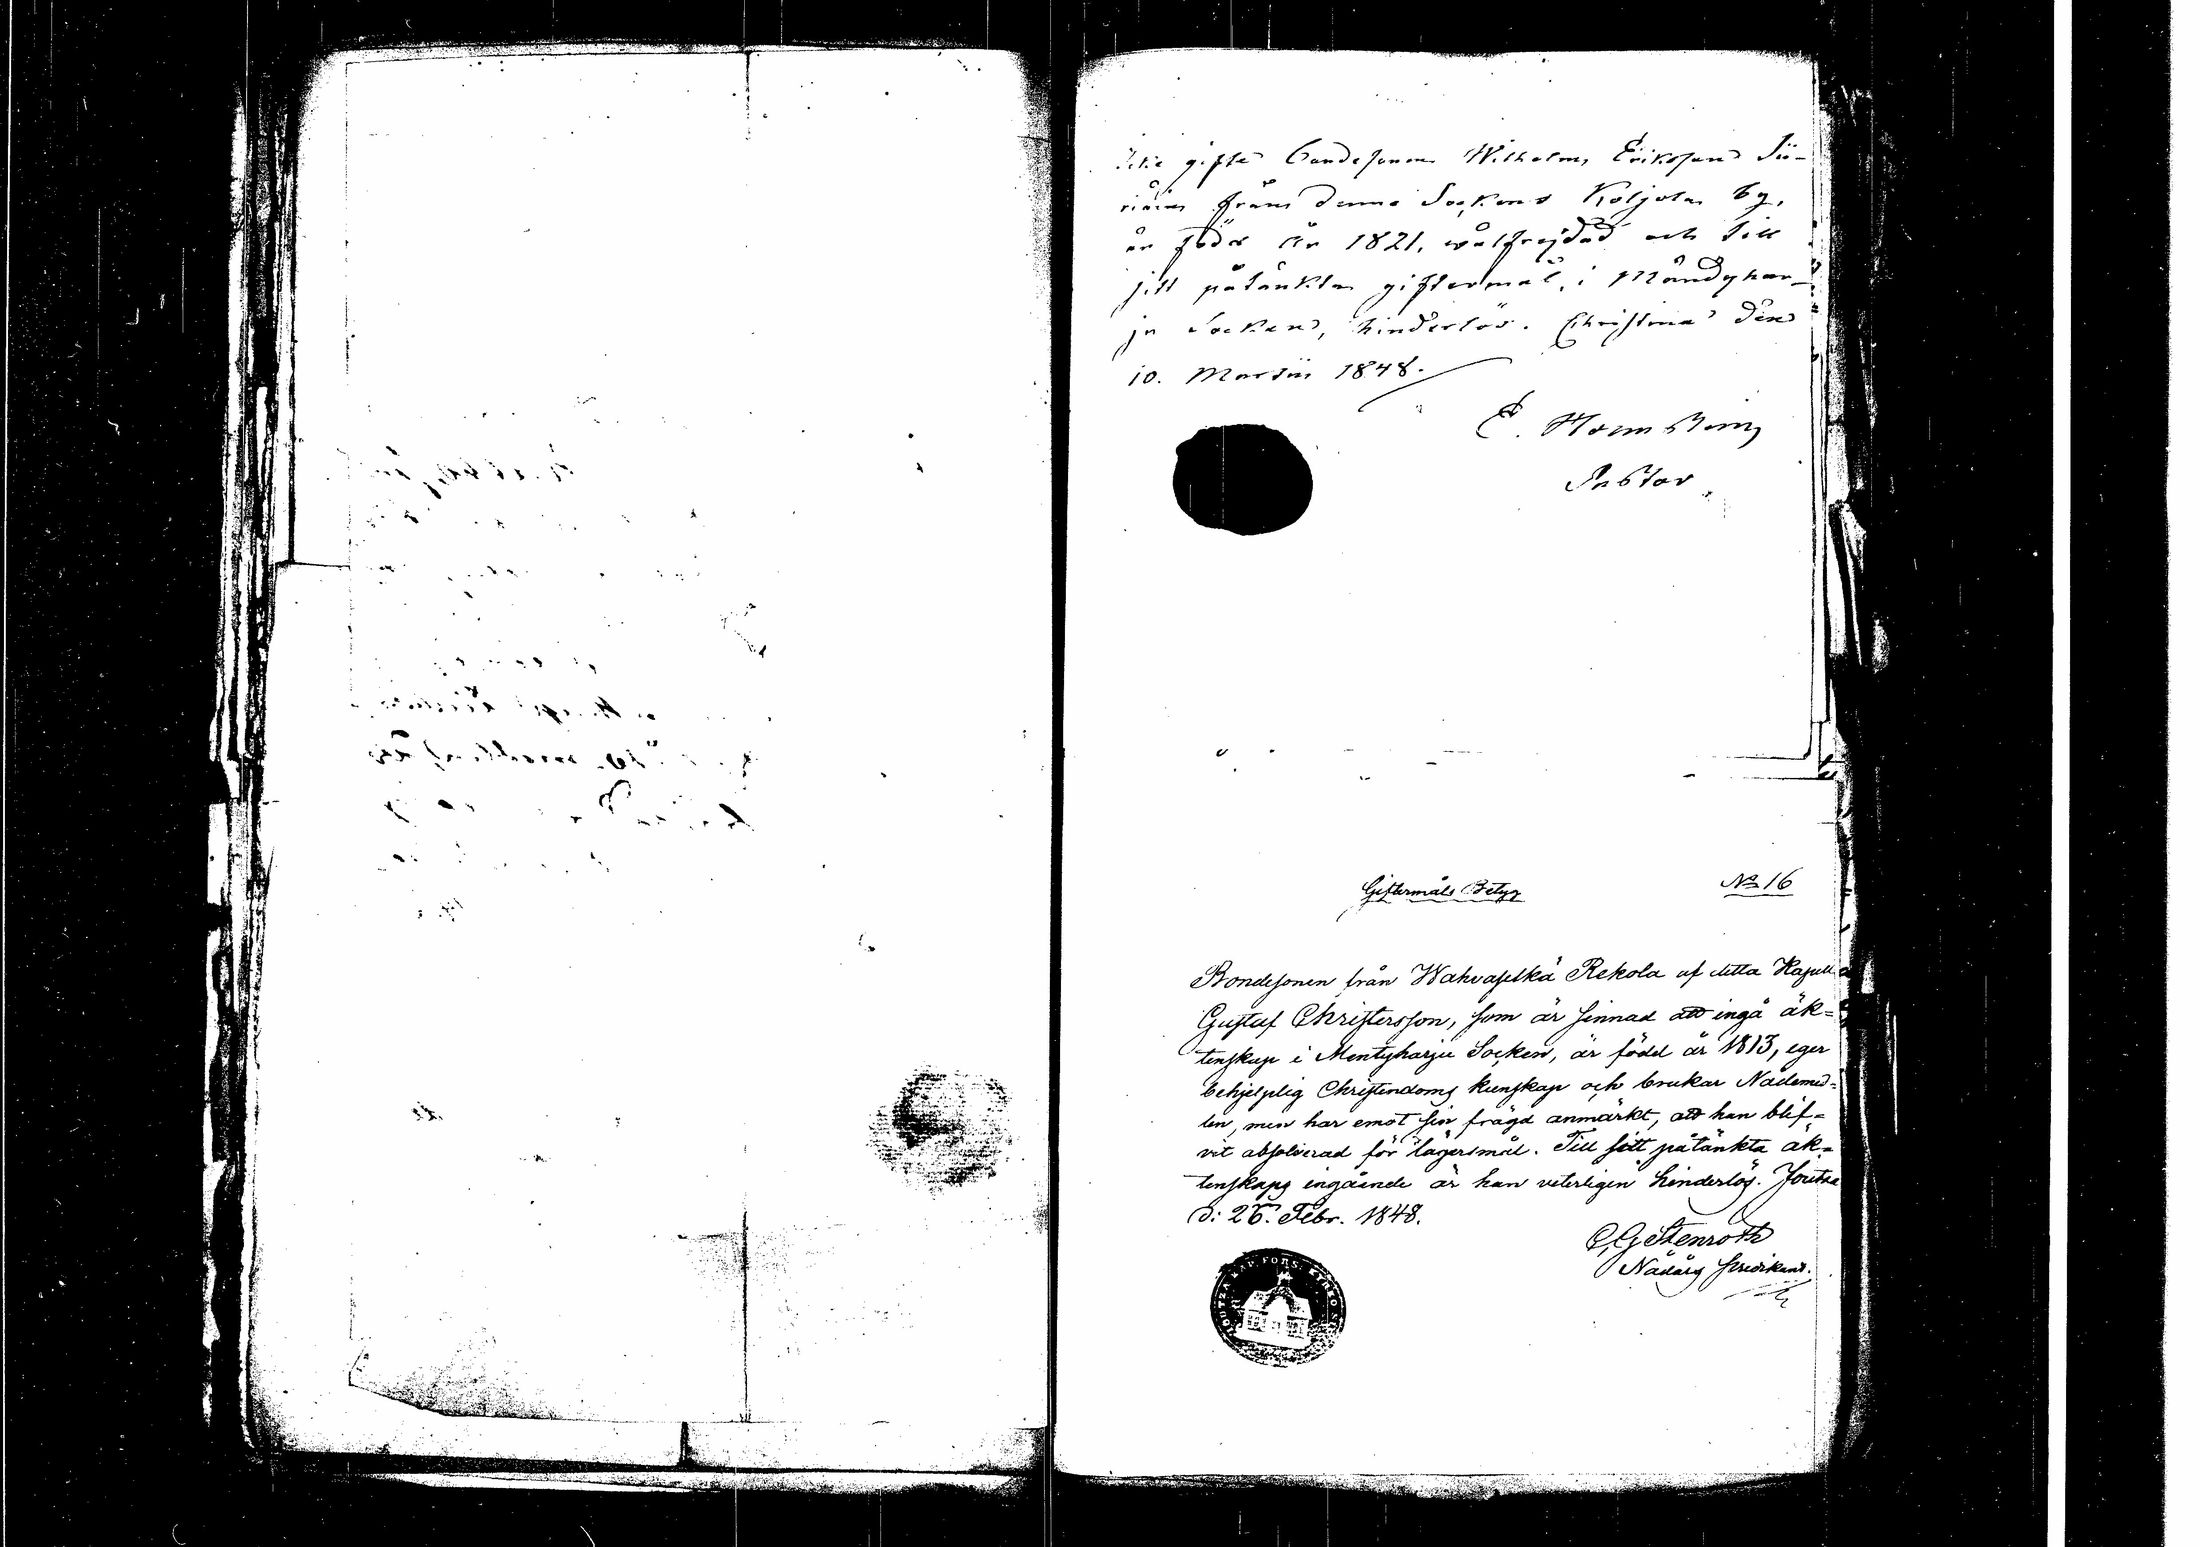 gifte Bondesonen Wilhelm Eriksson Sii-
riäin från denna Sockens Koljola by,
är född år 1821, wälfrejdad och till
sitt påtänkta giftermål, i Mändyhar-
ju Socken, hinderlös. Christina den
10. Martii 1848.
E.
Pastor
Giftermåls Betyg
No 16
Bondesonen från Wahvaselkä Rekola af detta Kapell
Gustaf Christersson, som är sinnad att ingå äk=
tenskap i Mentyharju Socken, är född år 1813, eger
behjelplig Christendoms kunskap och brukar Nådemed-
len, men har emot sin frägd anmärkt, att han blif=
vit absolverad för lägersmål. Till sitt påtänkta äk=
tenskaps ingående är han veterligen hinderlös. Joutsa
d: 26. Febr. 1848.
C G Stenroth
Nådårs Predikant.
JOUTZA KAP. FÖRS. KYRKO